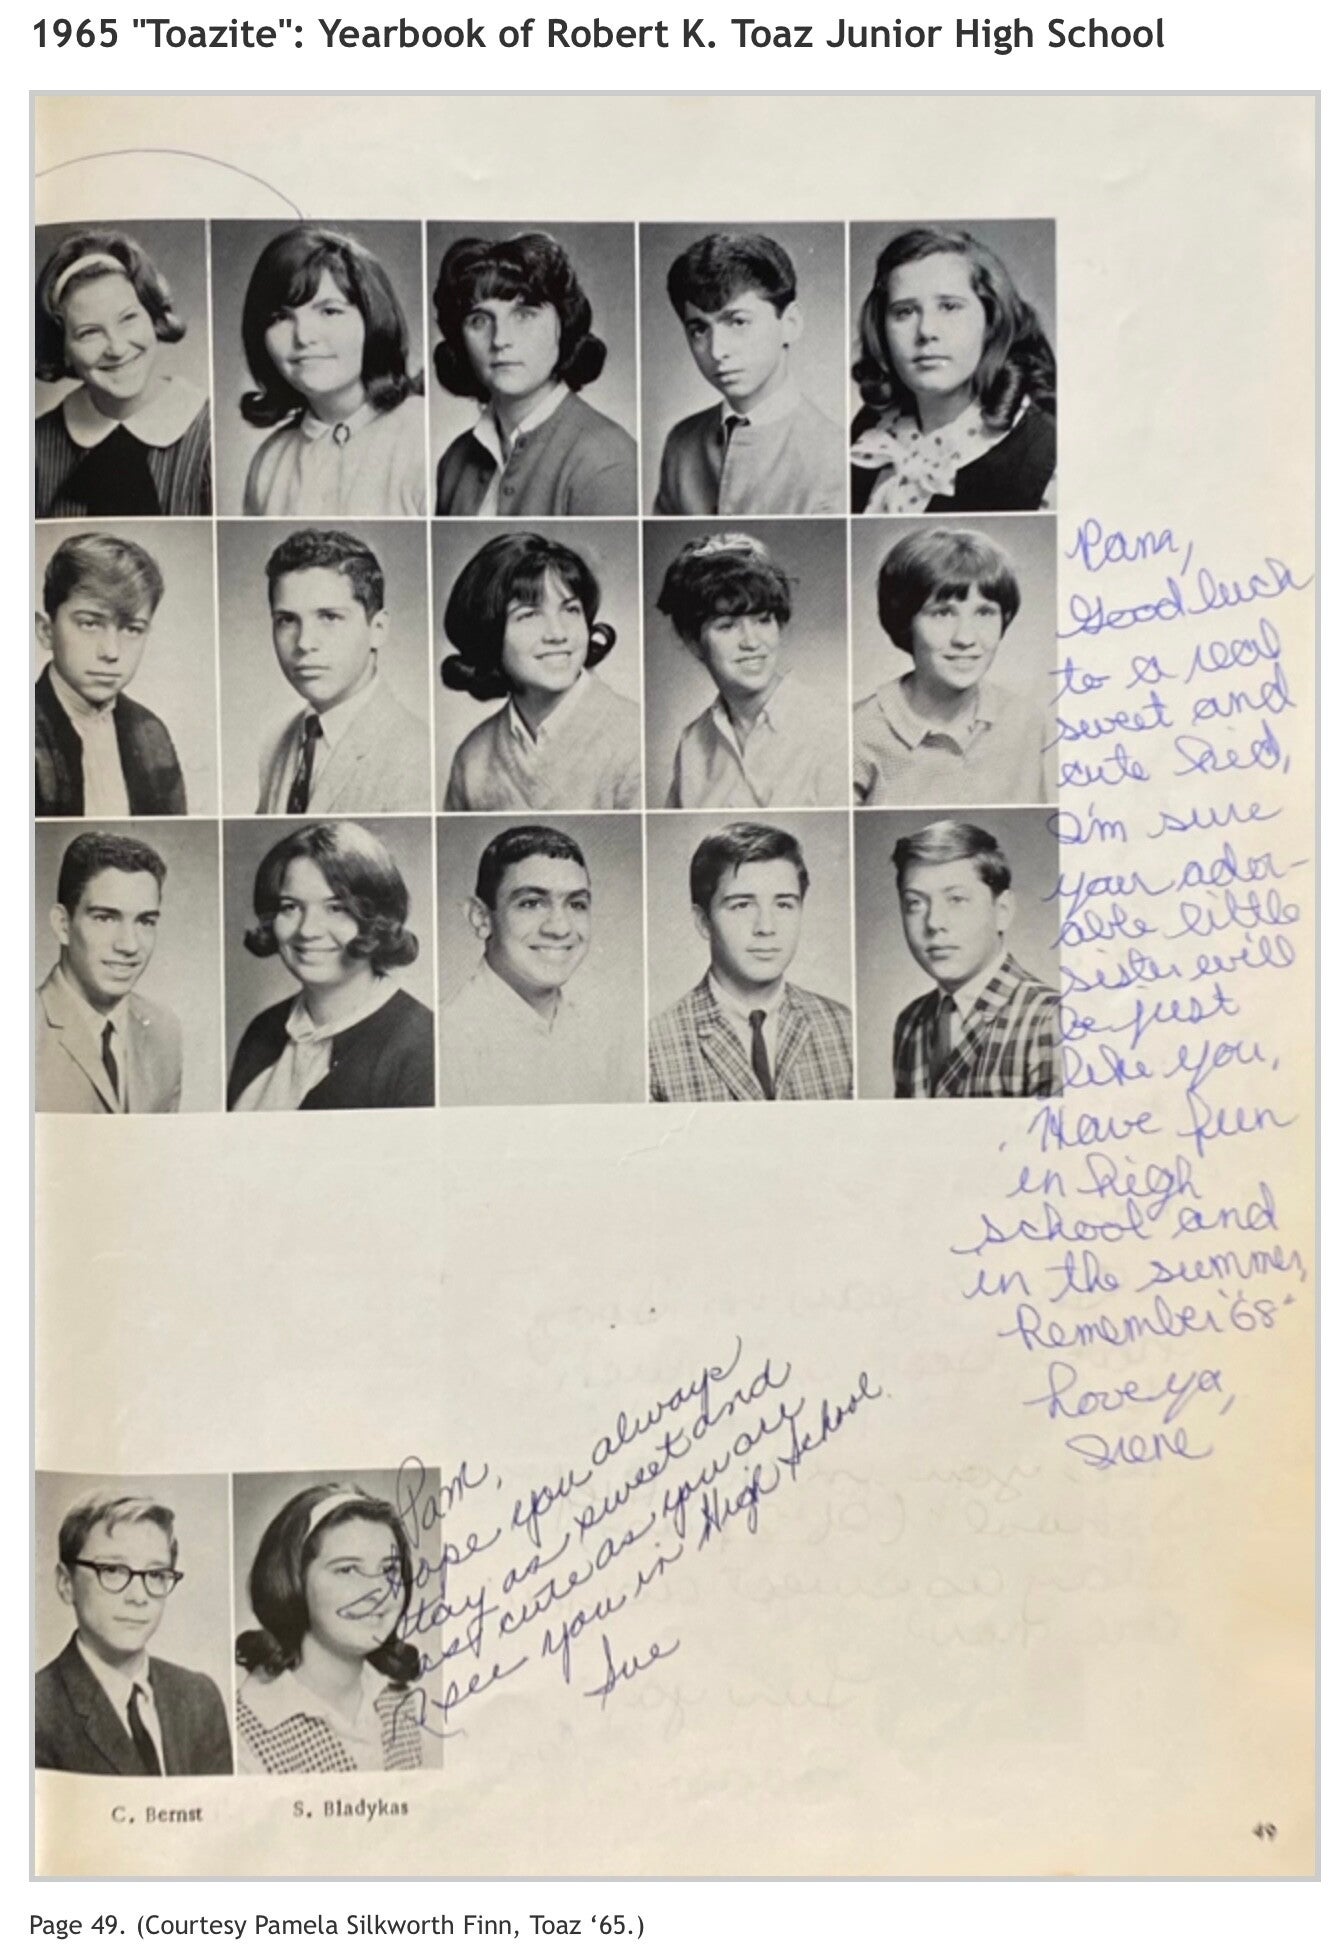 1965 "Toazite": Yearbook of Robert K. Toaz Junior High School
Pam,
Good luck
to a real
sweet and
cute kid,
I'm sure
your ador-
able little
sister will
be just
like you.
Have fun
in high
school and
in the summer,
Remember "68"
Love ya,
Irene
Pam,
Hope you always
stay as sweet and
as cute as you are
see you in High School.
Sue
C. Bernst
S. Bladykas
49
Page 49. (Courtesy Pamela Silkworth Finn, Toaz ‘65.)